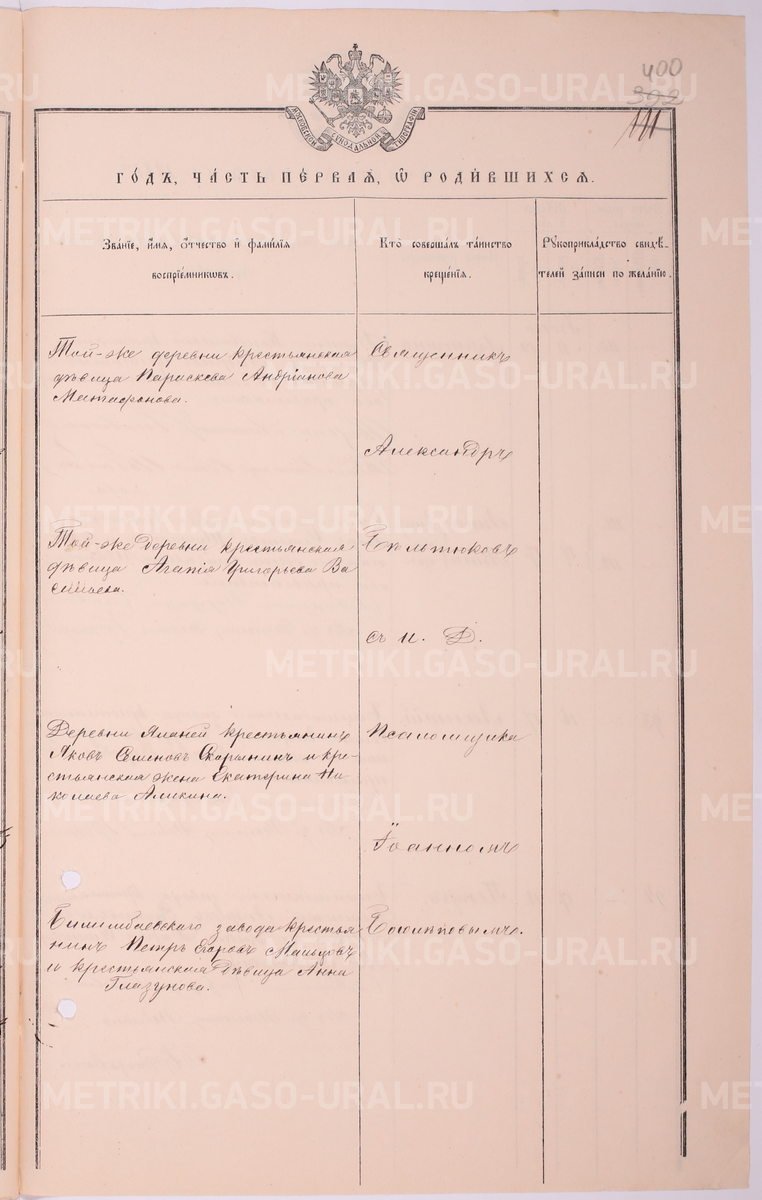 400
392
111
МОСКОВСКОЙ СѴНОДАЛЬНОЙ ТИПОГРАФІИ
ГО́ДЪ, ЧА́СТЬ ПЕ́РВАЯ, Ѡ҆ РОДИ́ВШИХСЯ.
Зва́нїе, и҆́мя, ѻ҆́тчество и҆ фами́лїя
воспрїе́мникѡвъ.
Кто̀ соверша́лъ та́инство
креще́нїя.
Рꙋкоприкла́дство свидѣ́-
телей за́писи по жела́нїю.
Той-же деревни крестьянская
дѣвица Параскева Андріанова
Матафонова.
Священникъ
Александръ
Той-же деревни крестьянская
дѣвица Агапія Григорьева Ва
сильева.
Бѣльтюковъ
съ и. д.
Деревни крестьянинъ
Яковъ Семеновъ Скорынинъ и кре-
стьянская жена Екатерина Ни
колаева Аликина.
Псаломщика
Іоанномъ
Билимбаевскаго завода крестья
нинъ Петръ Егоровъ Мальцовъ
и крестьянская дѣвица Анна
Глазунова.
METRIKI.GASO-URAL.RU